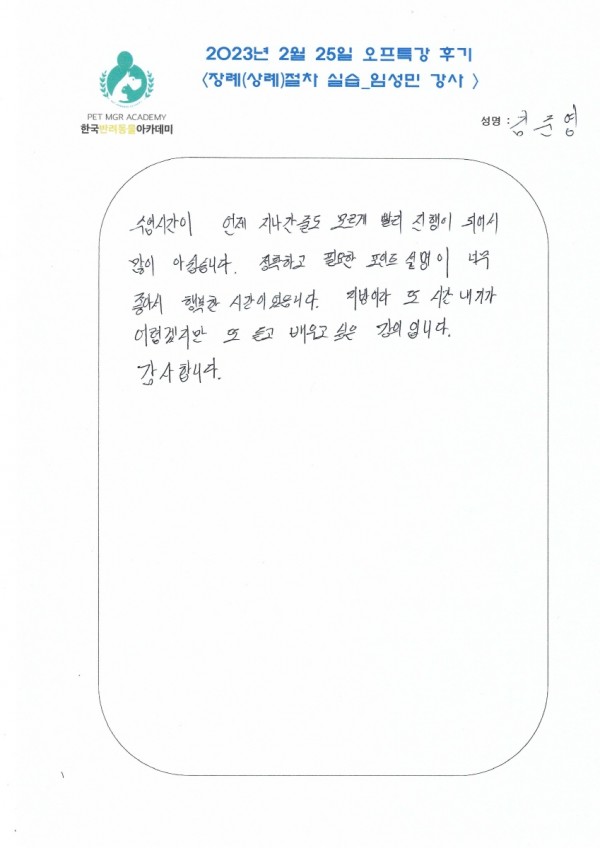 2023년 2월 25일 오프특강 후기
<장례(상례)절차 실습_임성민 강사 >
PET MGR ACADEMY
한국반려동물아카데미
성명 : 김준영
수업시간이 언제 지나간줄도 모르게 빨리 진행이 되어서
많이 아쉽습니다. 정확하고 필요한 포인트 설명이 너무
좋아서 행복한 시간이었습니다. 지방이라 또 시간 내기가
어렵겠지만 또 듣고 배우고 싶은 강의 입니다.
감사합니다.